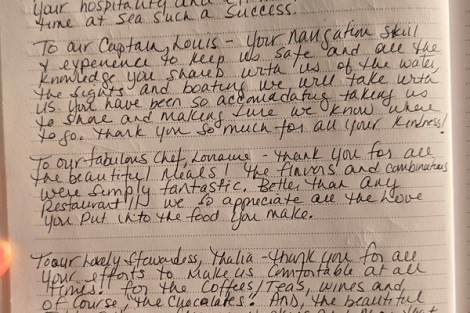 your hospitality and
time at sea such a success.
To our Captain, Louis - your navigation skill
& experience to keep us safe and all the
knowledge you shared with us of the water,
the sights and boating we will take with
us. you have been so accomadating taking us
to shore and making sure we know where
to go. Thank you so much for all your kindness!
To our fabulous Chef, Lorraine - thank you for all
the beautiful meals! The flavors and combinations
were simply fantastic. Better than any
restaurant!! We so appreciate all the love
you put into the food you make.
To our lovely Stewardess, Thalia - thank you for all
your efforts to make us comfortable at all
times! For the Coffees/Teas, wines and
of course, the Chocolates! And, the beautiful